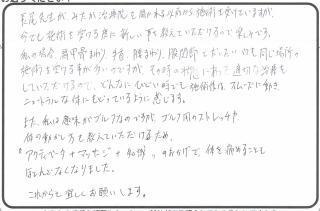 先生が、みたか治療院を開かれる以前から施術を受けていますが、
今でも施術を受ける度に新しい事を教えていただけるので楽しみです。
私の場合、肩甲骨まわり、手首、腰まわり、股関節とだいたいいつも同じ場所の
施術を受ける事が多いのですが、その時の状態にあって適切な治療を
していただけるので、どんなにひどい時でも施術後は、スムーズに動き
ニュートラルな体にもどっているように感じます。
また、私は趣味がゴルフなのですが、ゴルフ用のストレッチや
体の動かし方も教えていただけるため、
"アクティベータ+マッサージ+知識"のおかげで、体を痛めることも
ほとんどなくなりました。
これからも宜しくお願いします。